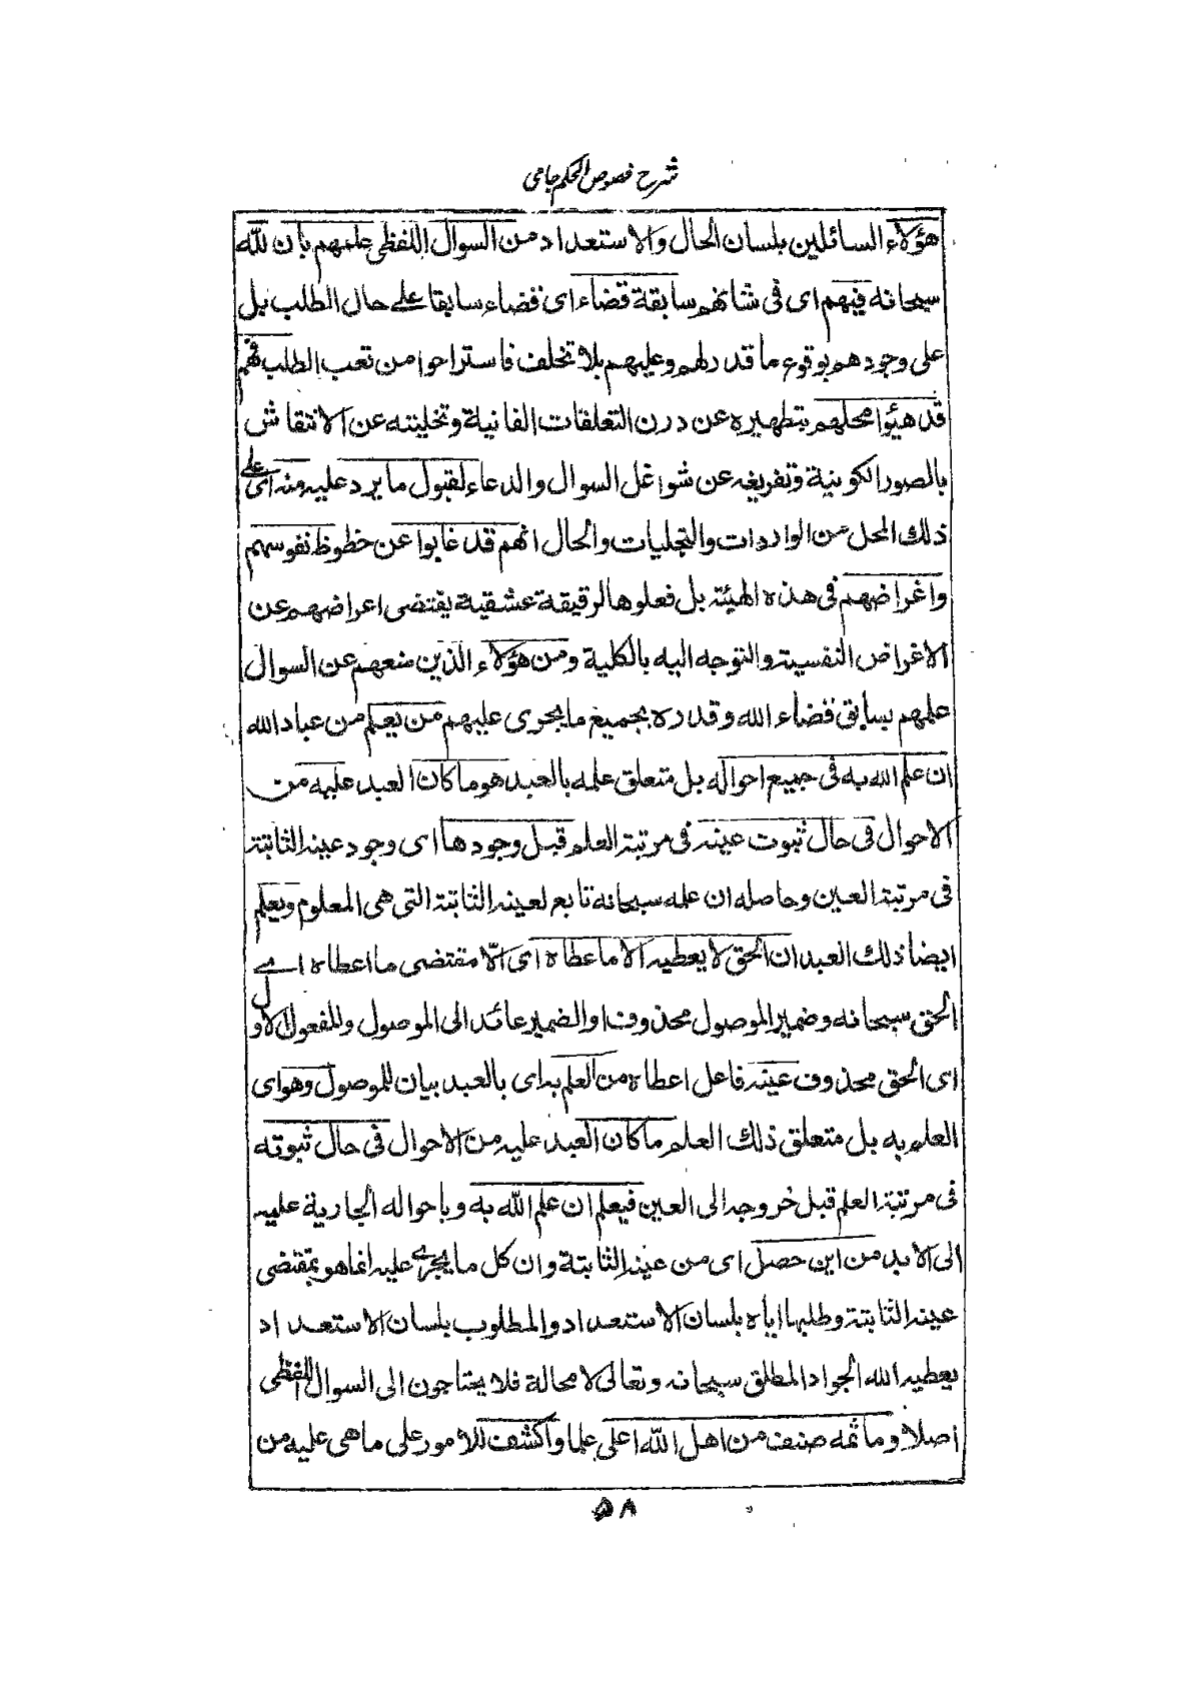 شرح فصوص الحكم جامى
هؤلاء السائلين بلسان الحال والاستعداد من السوال اللفظى علمهم بان لله
سبحانه فيهم اى فى شانهم سابقة قضاء اى قضاء سابقا على حال الطلب بل
على وجودهم بوقوع ما قدر لهم وعليهم بلا تخلف فاستراحوا من تعب الطلب فهم
قد هيئوا محلهم بتطهيره عن درن التعلقات الفانية وتخليته عن الانتقاش
بالصور الكونية وتفريغه عن شواغل السوال والدعاء لقبول ما يرد عليه منه اى على
ذلك المحل من الواردات والتجليات والحال انهم قد غابوا عن حظوظ نفوسهم
واغراضهم فى هذه الهيئة بل فعلوها لرقيقة عشقية يقتضى اعراضهم عن
الاغراض النفسية والتوجه اليه بالكلية ومن هؤلاء الذين منعهم عن السوال
علمهم بسابق قضاء الله وقدره بجميع ما يجرى عليهم من يعلم من عباد الله
ان علم الله به فى جميع احواله بل متعلق علمه بالعبد هو ما كان العبد عليه من
الاحوال فى حال ثبوت عينه فى مرتبة العلم قبل وجودها اى وجود عينه الثابتة
فى مرتبة العين وحاصله ان علمه سبحانه تابع لعينه الثابتة التى هى المعلوم ويعلم
ايضا ذلك العبد ان الحق لا يعطيه الا ما عطاه اى الّا مقتضى ما اعطاه اے
الحق سبحانه وضمير الموصول محذوف او الضمير عائد الى الموصول وللمفعول الاول
اى الحق محذوف عينه فاعل اعطاه من العلم به اى بالعبد بيان للموصول وهو اى
العلم به بل متعلق ذلك العلم ما كان العبد عليه من الاحوال فى حال ثبوته
فى مرتبة العلم قبل خروجه الى العين فيعلم ان علم الله به وباحواله الجارية عليه
الى الابد من اين حصل اى من عينه الثابتة وان كل ما يجرے عليه انما هو بمقتضى
عينه الثابتة وطلبها اياه بلسان الاستعداد والمطلوب بلسان الاستعداد
يعطيه الله الجواد المطلق سبحانه وتعالى لا محالة فلا يحتاجون الى السوال اللفظى
اصلا وما ثمه صنف من اهل الله اعلى علما واكشف للامور على ما هى عليه من
۵۸